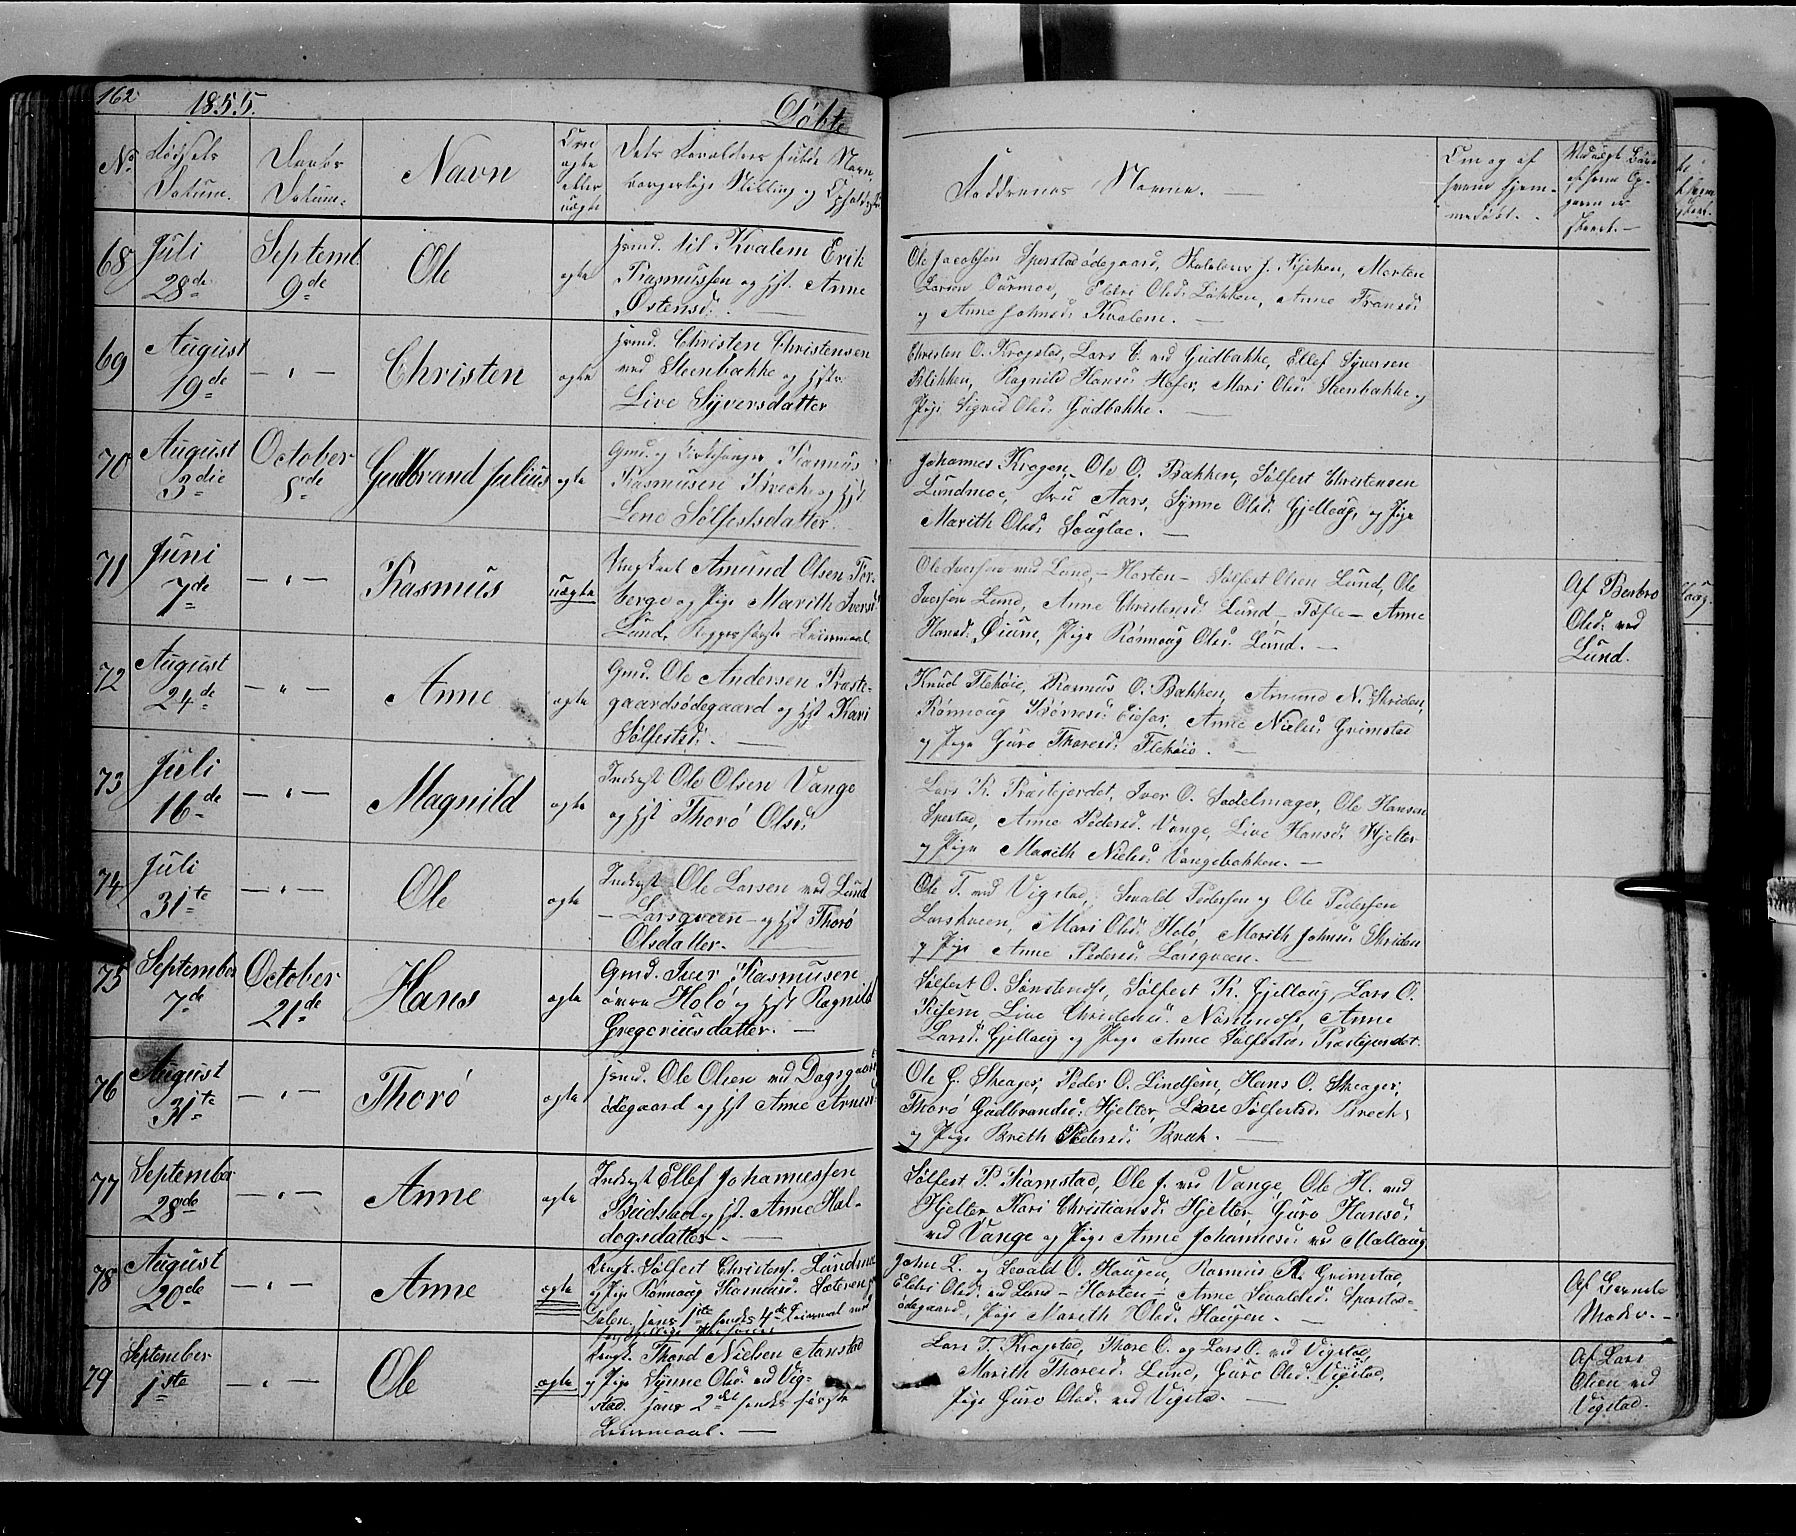 162 1855. Døbte
No. Fødsels Datum. Daabs Datum. Navn Om ægte eller uægte Dets Forældres fulde Navn, borgerlige Stilling og Opholdssted
Faddrenes Navne. — Om og af hvem hjemmedøbt. Ved uægte Børn
68 Juli 28de Septembr 9de Ole ægte
til Kvalem Erik
Rasmussen og Anne
Østensd. —
Ole Jacobsen Sperstadødegaard, Morten
Larsen Eldri Olsd. Løkken, Anne Fransd.
og Anne Johnsd. Kvalem. —
69 August 19de — " — Christen ægte
Christen Christensen
ved Steenbakke og
Live Syversdatter
Christen O. Krogstad, Lars C. ved Gudbakke, Ellef Syversen
Blikken, Ragnild Hansd. Mari Olsd. Steenbakke og
Pige Sigrid Olsd. Gudbakke. —
70 August 3die October 8de Gudbrand Julius ægte
Gmd. og Kirkesanger Rasmus
Rasmusen og
Lene Sølfestsdatter.
Johannes Krogen, Ole O. Bakken, Sølfest Christensen
Lundmoe, Fru Aars, Synne Olsd. Gjellaug, og Pige
Marith Olsd. —
71 Juni 7de — " — Rasmus uægte
Ungkarl Amund Olsen
og Pige Marith Iversd.
Lund, Begges første Leiermaal
Ole Iversen ved Lund, — Horten — Sølfest Olsen Lund, Ole
Iversen Lund, Anne Christensd. Lund, — — Anne
Hansd. Øium, Pige Rønnaug Olsd. Lund. —
Af Berbro
Olsd. ved
Lund.
72 August 24de — " — Anne ægte
Gmd. Ole Andersen Præste-
gaardsødegaard og Kari
Sølfestsd. —
Knud Flekøie, Rasmus O. Bakken, Amund N. Skriden,
Rønnaug Anne Nielsd. Grimstad
og Pige Guro Thoresd. Flekøie. —
73 Juli 16de — " — Magnild ægte
Inderst Ole Olsen Vange
og Thorø Olsd.
Lars R. Præstejordet, Iver O. Sadelmager, Ole Hansen
Sperstad, Anne Pedersd. Vange, Live Hansd. Hjelter
og Pige Marith Nielsd. Vangebakken. —
74 Juli 31te — " — Ole ægte
Inderst Ole Larsen ved Lund
— Larsqveen — og Thorø
Olsdatter. —
Ole T. ved Vigstad, Sevald Pedersen og Ole Pedersen
Larskveen, Mari Olsd. Holø, Marith Johnsd. Skriden
og Pige Anne Pedersd. Larsqveen. —
75 September 7de October 21de Hans ægte
Gmd. Iver Rasmusen
øvre Holø og Ragnild
Gregoriusdatter. —
Sølfest O. Sølfest R. Gjellaug, Lars O.
Live Christensd. Anne
Larsd. Gjellaug og Pige Anne Sølfestsd.
76 August 31te — " — Thorø ægte
Ole Olsen ved Dagsgaard
ødegaard og Anne Arnesd.
Ole G. Skeager, Peder O. Lindsem, Hans O. Skeager,
Thorø Gudbrandsd. Hjelter, Lene Sølfestsd.
og Pige Brith Pedersd. —
77 September 28de — " — Anne ægte
Inderst Ellef Johannessen
og Anne Hal-
dogsdatter. —
Sølfest P. Ramstad, Ole J. ved Vange, Ole H. ved
Hjelter, Kari Christiansd. Hjelter, Guro Hansd.
ved Vange og Pige Anne Johannesd. ved Mollaug
78 August 20de — " — Anne ægte
Sølfest Christens. Lundmoe
og Pige Rønnaug Rasmusd.
Dalen, hans 1ste hendes 4de Leiermaal
John L. og Sevald O. Haugen, Rasmus R. Grimstad,
Eldri Olsd. ved Lund — Horten — Anne Sevaldsd. Sperstad-
ødegaard, Pige Marith Olsd. Haugen. —
Af
Moder. —
79 September 1ste — " — Ole ægte
Thord Nielsen Aanstad
og Pige Synne Olsd. ved Vig-
stad. hans 2det hendes første
Leiermaal. —
Lars T. Krogstad, Thore O. og Lars O. ved Vigstad,
Marith Thoresd. Lund, Guro Olsd. Vigstad,
Pige Guro Olsd. ved Vigstad. —
Af Lars
Olsen ved
Vigstad.